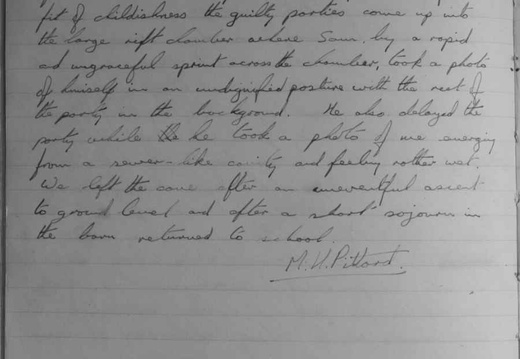 fit of childishness the guilty parties come up into
the large rift chamber where Sam, by a rapid
and ungraceful sprint across the chamber, took a photo
of himself in an undignified posture with the rest of
the party in the background. He also delayed the
party while the he took a photo of me emerging
from a sewer-like cavity and feeling rather wet.
We left the cave after an uneventful ascent
to ground level and after a short sojourn in
the barn returned to school.
M.H. Pittard.